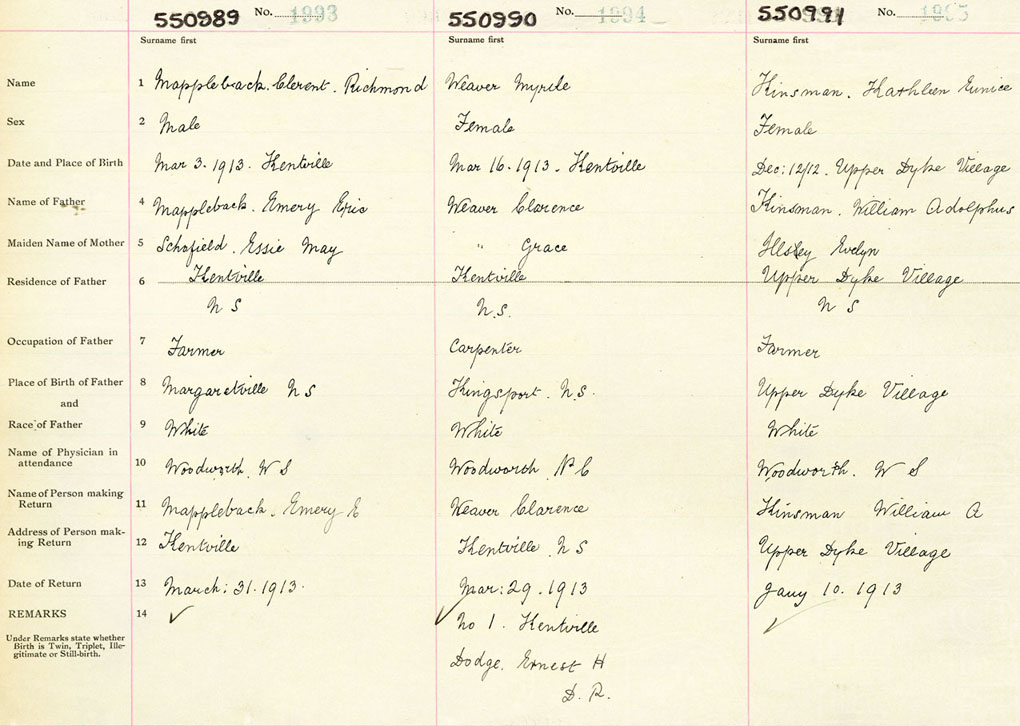 550989 No. 1993 550990 No. 1994 550991 No. 1995
Surname first Surname first Surname first
Name 1 Mappleback. Clerent. Richmond Weaver Myrtle Kinsman. Kathleen Eunice
Sex 2 Male Female Female
Date and Place of Birth 3 Mar 3. 1913. Kentville Mar 16. 1913. Kentville Dec: 12/12. Upper Dyke Village
Name of Father 4 Mappleback. Emery Eric Weaver Clarence Kinsman. William Adolphus
Maiden Name of Mother 5 Schofield. Essie May " Grace Illsley Evelyn
Residence of Father 6 Kentville Kentville Upper Dyke Village
N S N.S. N S
Occupation of Father 7 Farmer Carpenter Farmer
Place of Birth of Father 8 Margaretville N S Kingsport. N.S. Upper Dyke Village
and
Race of Father 9 White White White
Name of Physician in
attendance 10 Woodworth. W S Woodworth Woodworth. W S
Name of Person making
Return 11 Mappleback. Emery E Weaver Clarence Kinsman William A
Address of Person mak-
ing Return 12 Kentville Kentville N S Upper Dyke Village
Date of Return 13 March: 31. 1913. Mar: 29. 1913 Jany 10. 1913
REMARKS 14 ✓ ✓ No 1. Kentville ✓
Under Remarks state whether
Birth is Twin, Triplet, Ille-
gitimate or Still-birth.
Dodge. Ernest H
D. R.